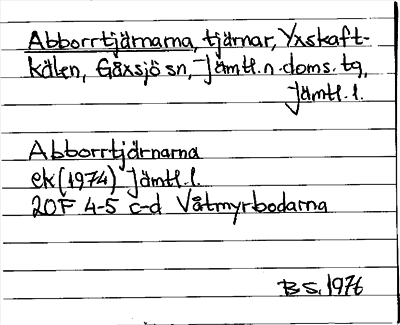 Abborrtjärnarna, tjärnar, Yxskaft-
kälen, Gåxsjö sn, Jämtl.n.doms.tg,
Jämtl.l.
Abborrtjärnarna
ek (1974) Jämtl.l.
20F 4-5 c-d Våtmyrbodarna
BS. 1976